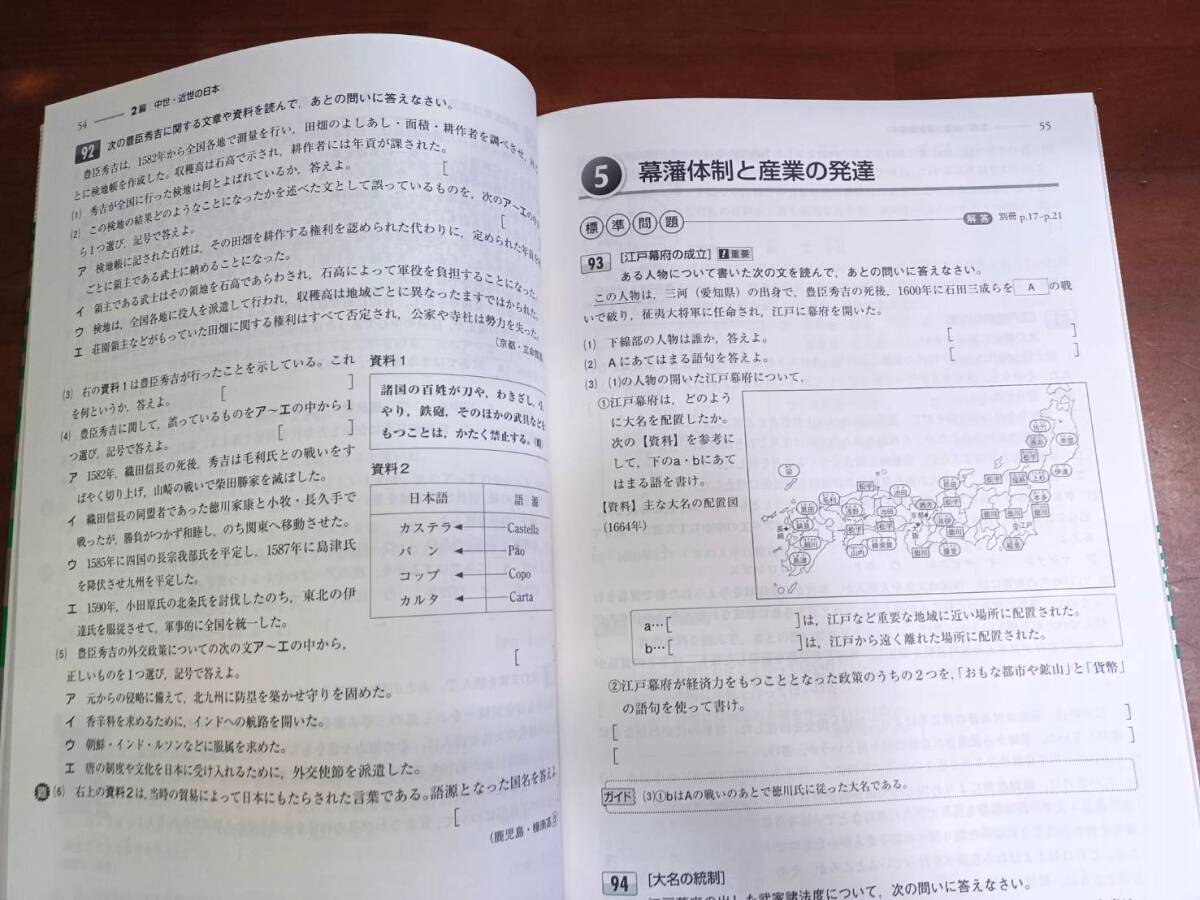 54 2編 中世・近世の日本
92 次の豊臣秀吉に関する文章や資料を読んで，あとの問いに答えなさい。
豊臣秀吉は，1582年から全国各地で測量を行い，田畑のよしあし・面積・耕作者を調べさせ，
とに検地帳を作成した。収穫高は石高で示され，耕作者には年貢が課された。
(1) 秀吉が全国に行った検地は何とよばれているか，答えよ。 [
(2) この検地の結果どのようなことになったかを述べた文として誤っているものを，次のア〜エの中か
ら1つ選び，記号で答えよ。 [
ア 検地帳に記された百姓は，その田畑を耕作する権利を認められた代わりに，定められた年貢を
ごとに領主である武士に納めることになった。
イ 領主である武士はその領地を石高であらわされ，石高によって軍役を負担することになった。
ウ 検地は，全国各地に役人を派遣して行われ，収穫高は地域ごとに異なったますではかられた。
エ 荘園領主などがもっていた田畑に関する権利はすべて否定され，公家や寺社は勢力を失った。
(京都・立命館
(3) 右の資料1は豊臣秀吉が行ったことを示している。これ
を何というか，答えよ。 [ ]
(4) 豊臣秀吉に関して，誤っているものをア〜エの中から1
つ選び，記号で答えよ。 [ ]
ア 1582年，織田信長の死後，秀吉は毛利氏との戦いをす
ばやく切り上げ，山崎の戦いで柴田勝家を滅ぼした。
イ 織田信長の同盟者であった徳川家康と小牧・長久手で
戦ったが，勝負がつかず和睦し，のち関東へ移動させた。
ウ 1585年に四国の長宗我部氏を平定し，1587年に島津氏
を降伏させ九州を平定した。
エ 1590年，小田原氏の北条氏を討伐したのち，東北の伊
達氏を服従させて，軍事的に全国を統一した。
資料1
諸国の百姓が刀や，わきざし，弓，
やり，鉄砲，そのほかの武具などを
もつことは，かたく禁止する。(略)
資料2
日本語 語源
カステラ ◄ Castella
パン ◄ Pão
コップ ◄ Copo
カルタ ◄ Carta
(5) 豊臣秀吉の外交政策についての次の文ア〜エの中から，
正しいものを1つ選び，記号で答えよ。 [
ア 元からの侵略に備えて，北九州に防塁を築かせ守りを固めた。
イ 香辛料を求めるために，インドへの航路を開いた。
ウ 朝鮮・インド・ルソンなどに服属を求めた。
エ 唐の制度や文化を日本に受け入れるために，外交使節を派遣した。
(6) 右上の資料2は，当時の貿易によって日本にもたらされた言葉である。語源となった国名を答えよ
[
(鹿児島・樟南高
55
5 幕藩体制と産業の発達
標準問題 解答 別冊 p.17〜p.21
93 [江戸幕府の成立] !重要
ある人物について書いた次の文を読んで，あとの問いに答えなさい。
この人物は，三河（愛知県）の出身で，豊臣秀吉の死後，1600年に石田三成らを A の戦
いで破り，征夷大将軍に任命され，江戸に幕府を開いた。
(1) 下線部の人物は誰か，答えよ。 [ ]
(2) Aにあてはまる語句を答えよ。 [ ]
(3) (1)の人物の開いた江戸幕府について，
①江戸幕府は，どのよう
に大名を配置したか。
次の【資料】を参考に
して，下のa・bにあて
はまる語を書け。
【資料】主な大名の配置図
(1664年)
佐竹
酒井
上杉
伊達
宗
毛利
山内
蜂須賀
島津
江戸
長崎
a…[ ]は，江戸など重要な地域に近い場所に配置された。
b…[ ]は，江戸から遠く離れた場所に配置された。
②江戸幕府が経済力をもつこととなった政策のうちの2つを，「おもな都市や鉱山」と「貨幣」
の語句を使って書け。
[ ]
[ ]
ガイド (3)①bはAの戦いのあとで徳川氏に従った大名である。
94 [大名の統制]
江戸幕府の出した武家諸法度について，次の問いに答えなさい。